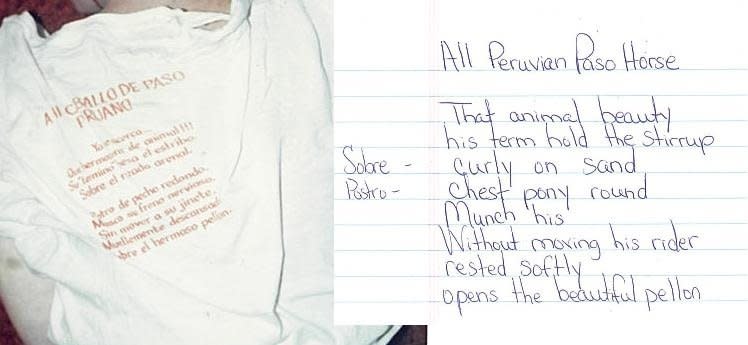 CBALLO DE PASO
PRUANO
de animal!!!
el estribo.
Sobre el rizado arenal.
de pecho redondo.
su freno nervioso,
Sin mover a su jinete,
Muellemente
el hermoso pellon.
All Peruvian Paso Horse
That animal beauty
his term hold the stirrup
Sobre - Curly on sand
Postro - Chest pony round
Munch his
Without moving his rider
rested softly
opens the beautiful pellon